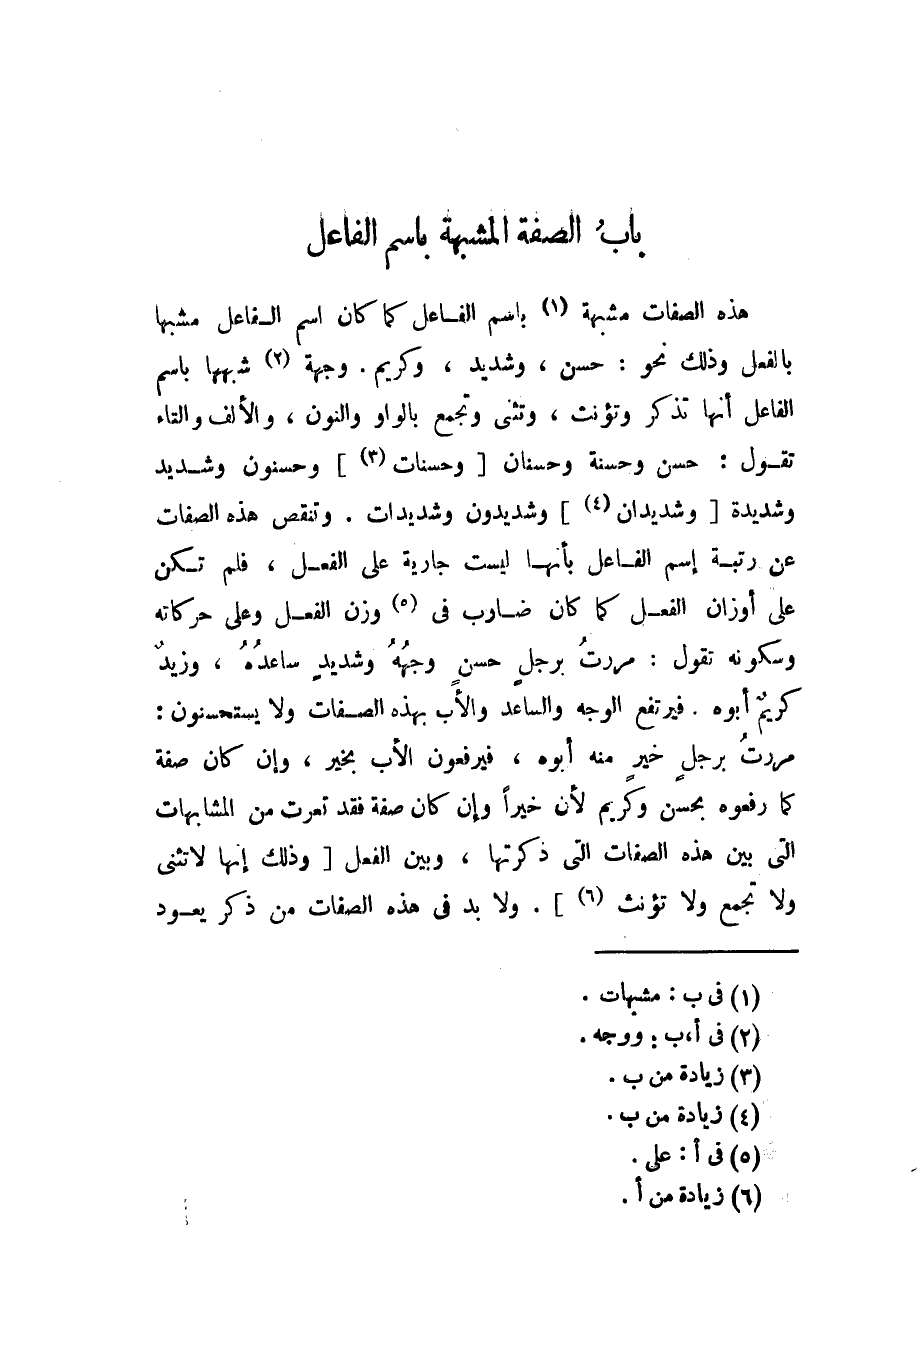 بابُ الصفة المشبهة باسم الفاعل
هذه الصفات مشبهة (١) باسم الفاعل كما كان اسم الفاعل مشبها
بالفعل وذلك نحو : حسن ، وشديد ، وكريم . وجهة (٢) شبهها باسم
الفاعل أنها تذكر وتؤنث ، وتثنى وتجمع بالواو والنون ، والألف والتاء
تقول : حسن وحسنة وحسنان [ وحسنات (٣) ] وحسنون وشديد
وشديدة [ وشديدان (٤) ] وشديدون وشديدات . وتنقص هذه الصفات
عن رتبة إسم الفاعل بأنها ليست جارية على الفعل ، فلم تكن
على أوزان الفعل كما كان ضارب فى (٥) وزن الفعل وعلى حركاته
وسكونه تقول : مررتُ برجلٍ حسنٍ وجهُهُ وشديدٍ ساعدُهُ ، وزيدٌ
كريمٌ أبوه . فيرتفع الوجه والساعد والأب بهذه الصفات ولا يستحسنون :
مررتُ برجلٍ خيرٍ منه أبوه ، فيرفعون الأب بخير ، وإن كان صفة
كما رفعوه بحسن وكريم لأن خيراً وإن كان صفة فقد تعرت من المشابهات
التى بين هذه الصفات التى ذكرتها ، وبين الفعل [ وذلك إنها لا تثنى
ولا تجمع ولا تؤنث (٦) ] . ولا بد فى هذه الصفات من ذكر يعود
(١) فى ب : مشبهات .
(٢) فى أ،ب : ووجه .
(٣) زيادة من ب .
(٤) زيادة من ب .
(٥) فى أ : على .
(٦) زيادة من أ .